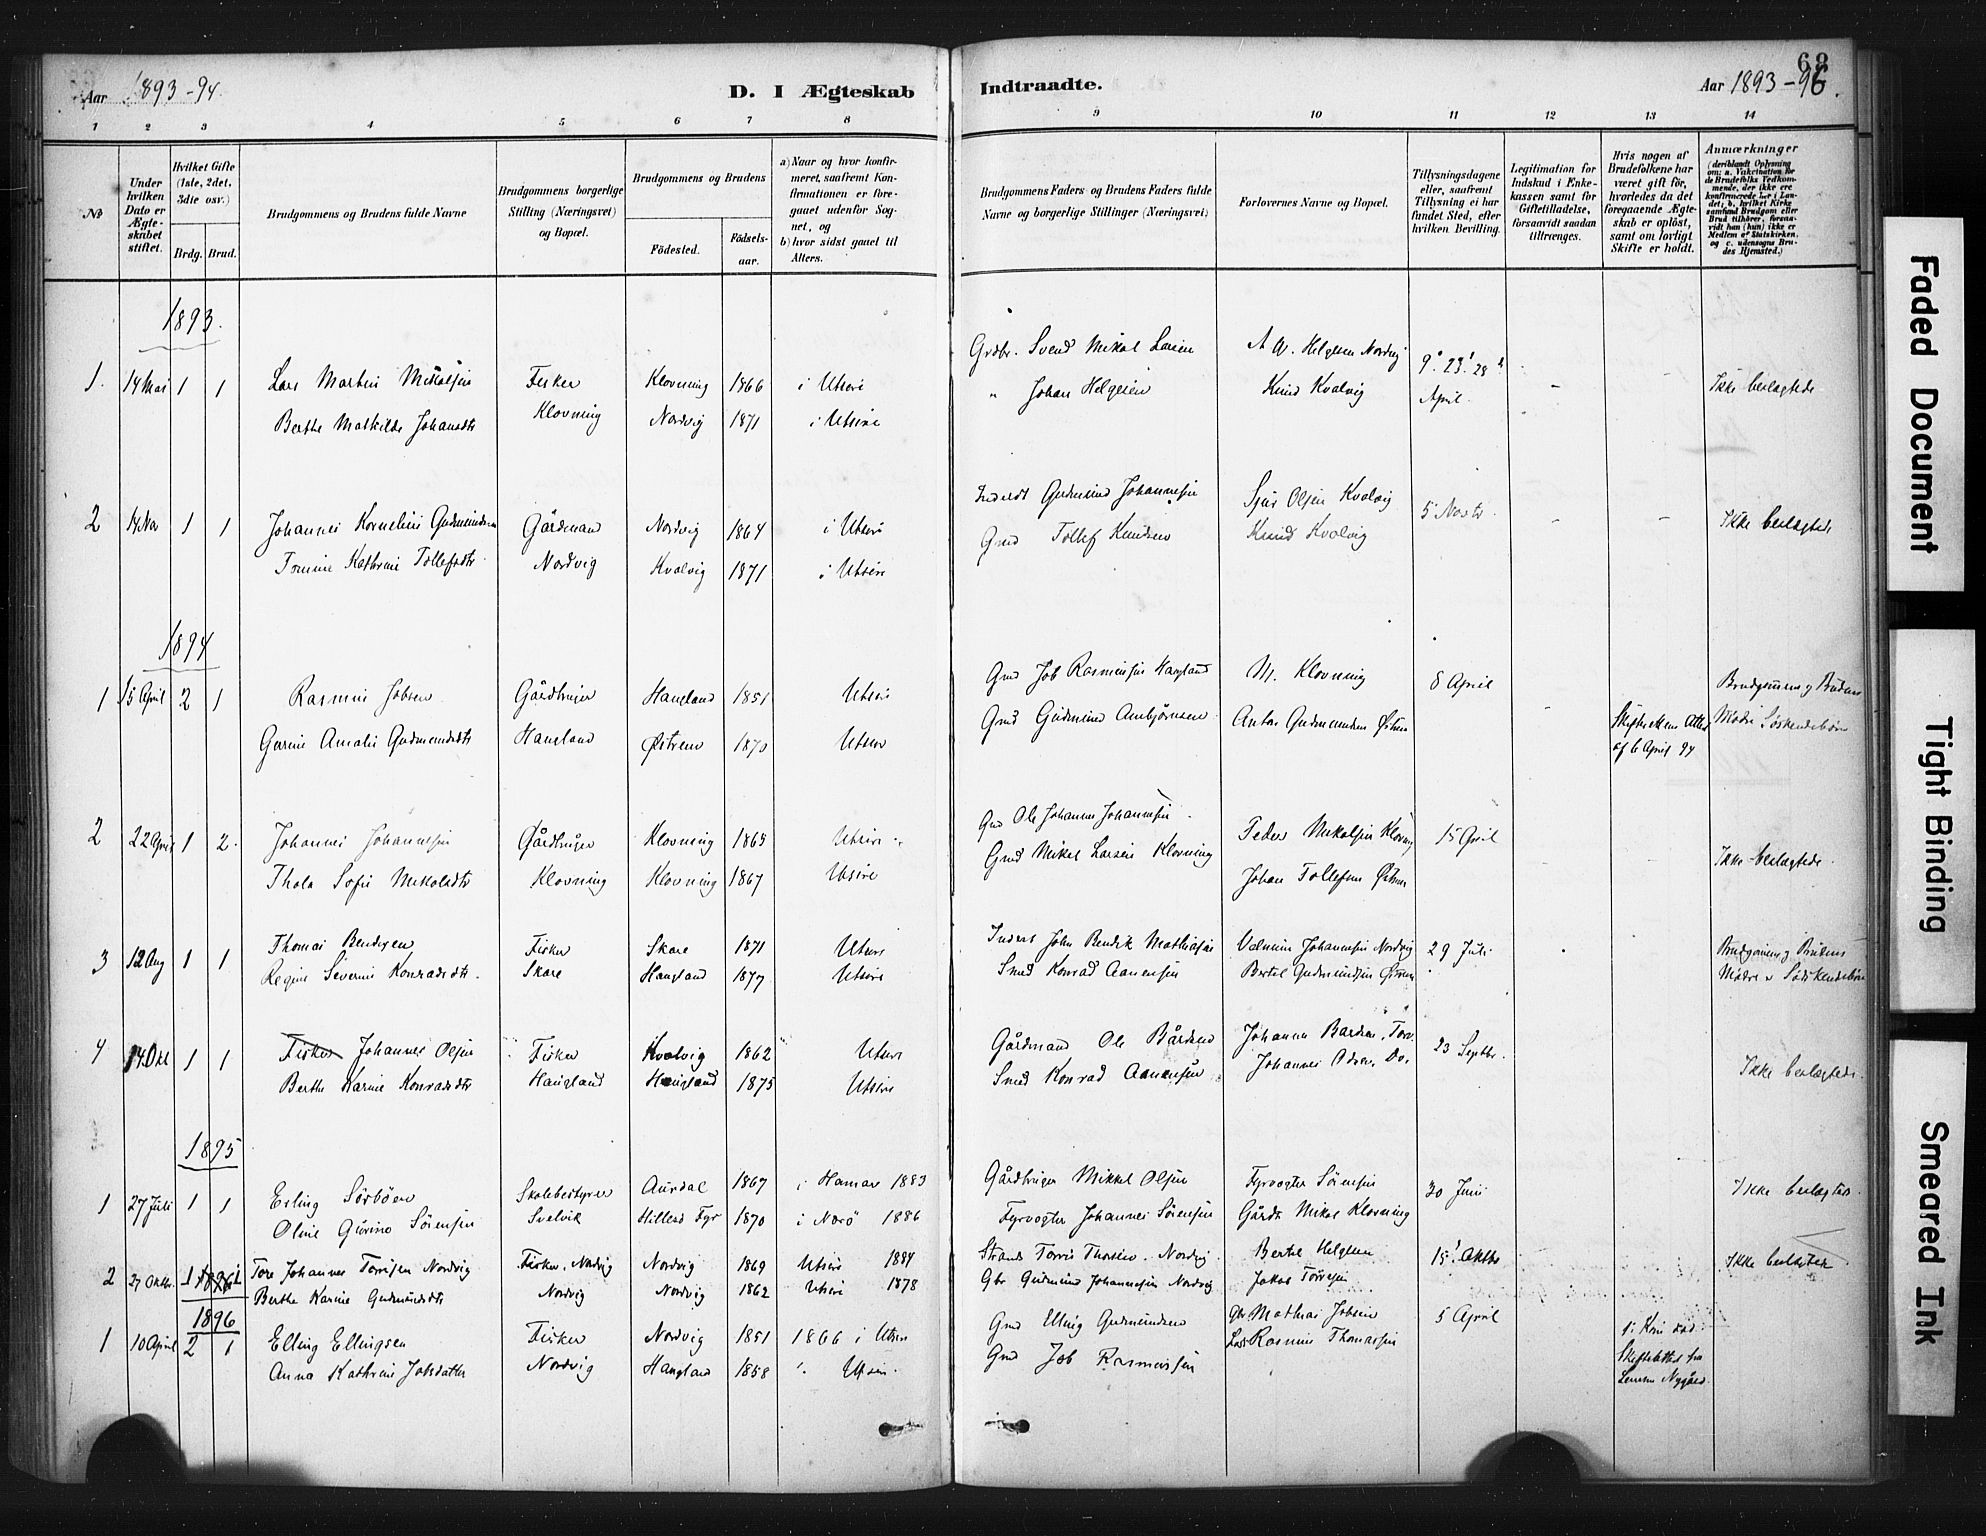 Aar 1893-94.
D. I Ægteskab Indtraadte.
68
Aar 1893-96.
1 2 3 4 5 6 7 8 9 10 11 12 13 14
No
Under hvilken Dato er Ægteskabet stiftet.
Hvilket Gifte (1ste, 2det, 3die osv.)
Brdg. Brud.
Brudgommens og Brudens fulde Navne
Brudgommens borgerlige Stilling (Næringsvei) og Bopæl.
Brudgommens og Brudens
Fødested. Fødselsaar.
a) Naar og hvor konfirmeret, saafremt Konfirmationen er foregaaet udenfor Sognet, og
b) hvor sidst gaaet til Alters.
Brudgommens Faders og Brudens Faders fulde Navne og borgerlige Stillinger (Næringsvei)
Forlovernes Navne og Bopæl.
Tillysningsdagene eller, saafremt Tillysning ei har fundet Sted, efter hvilken Bevilling.
Legitimation for Indskud i Enkekassen samt for Giftetilladelse, forsaavidt saadan tiltrænges.
Hvis nogen af Brudefolkene har været gift før, hvorledes da det foregaaende Ægteskab er opløst, samt om lovligt Skifte er holdt.
Anmærkninger
(deriblandt Oplysning om: a. Vakcination for de Brudefolks Vedkommende, der ikke ere konfirmerede her i Landet; b. hvilket Kirkesamfund Brudgom eller Brud tilhører, forsaavidt han (hun) ikke er Medlem af Statskirken, og c. udensogns Brudes Hjemsted.)
1893.
1. 14 Mai 1 1 Lars Martin Mikalsen Fisker Klovning 1866 i Utsire Grdbr. Svend Mikal Larsen A W. Helgesen Nordvig 9. 23. 28. - Ikke beslægtede
Berthe Mathilde Johansdtr Klovning Nordvig 1871 i Utsire " Johan Helgesen Knud Kvalvig April
2 14 Nov 1 1 Johannes Kornelius Gudmundsen Gårdmand Nordvig 1864 i Utsire Inderst Gudmund Johannesen Sjur Olsen Kvalvig 5 Novbr. - - Ikke beslægtede
Tomine Kathrine Tollefsdtr Nordvig Kvalvig 1871 i Utsire Gmd Tollef Knudsen Knud Kvalvig
1894
1 15 April 2 1 Rasmus Jobsen Gårdbruger Haugland 1851 Utsire Gmd Job Rasmussen Haugland M. Klovning 8 April Brudgommens og Brudens
Gurine Amalie Gudmundsdtr Haugland Østrem 1870 Utsire Gmd Gudmund Aanbjørnsen Anton Gudmundsen Østrem - Skifretten Attest Mødre Søskendebørn
af 6 April 94
2 22 April 1 2. Johannes Johannesen Gårdbruger Klovning 1865 Utsire Gmd Ole Johannes Johannesen Peder Mikalsen Klovning 15 April
Thala Sofie Mikalsdtr Klovning Klovning 1867 Utsire Gmd Mikal Larsen Klovning Johan Tollefsen Østrem Ikke beslægtede.
3 12 Aug 1 1 Thomas Bendigsen Fisker Skare 1871 Utsire Inderst John Bendik Mathiasen Johannesen Nordvig 29 Juli Brudgommens og Brudens
Regine Severine Konradsdtr. Skare Haugland 1877 Utsire Smed Konrad Aanensen Bertel Gudmundsen Østrem Mødre Søskendebørn
4 14 Okt 1 1 Fisker Johannes Olsen Fisker Kvalvig 1862 Utsire Gårdmand Ole Bårdsen Johannes Bardsen, Torv. 23 Septbr.
Berthe Karine Konradsdtr Haugland Haugland 1875 Utsire Smed Konrad Aanensen Johannes Odsen, Do. Ikke beslægtede.
1895
1 27 Juli 1 1 Erling Sörböen Skolebestyrer Aurdal 1867 i Hamar 1883 Gårdbruger Mikkel Olsen Fyrvogter Sörensen 30 Juni Ikke beslægtede.
Oline Gurine Sörensen Svelvik Hillesö Fyr 1870 i Nærö 1886 Fyrvogter Johannes Sörensen Gårdb Mikal Klovning
2 27 Oktbr. 1 1896 1 Tore Johannes Torrisen Nordvig Fisker, Nordvig Nordvig 1869 Utsire 1884 Strands Torris Thorsen. Nordvig Bertel Helgesen 15 Oktbr Ikke beslægtede
Berthe Karine Gudmundsdtr Nordvig Nordvig 1862 Utsire 1878 Gbr Gudmund Johannesen Nordvig Jakob Torresen
1896
1 10 April 2 1 Elling Ellingsen Fisker Nordvig 1851 1866 i Utsire Gmd Elling Gudmundsen Gbr Mathias Jobsen 5 April 1. Kone död.
Anna Kathrine Jobsdatter Nordvig Haugland 1858 " Utsire. Gmd Job Rasmussen Rasmus Thomassen Skifteattest fra
Lensm Nygård.
Faded Document
Tight Binding
Smeared Ink